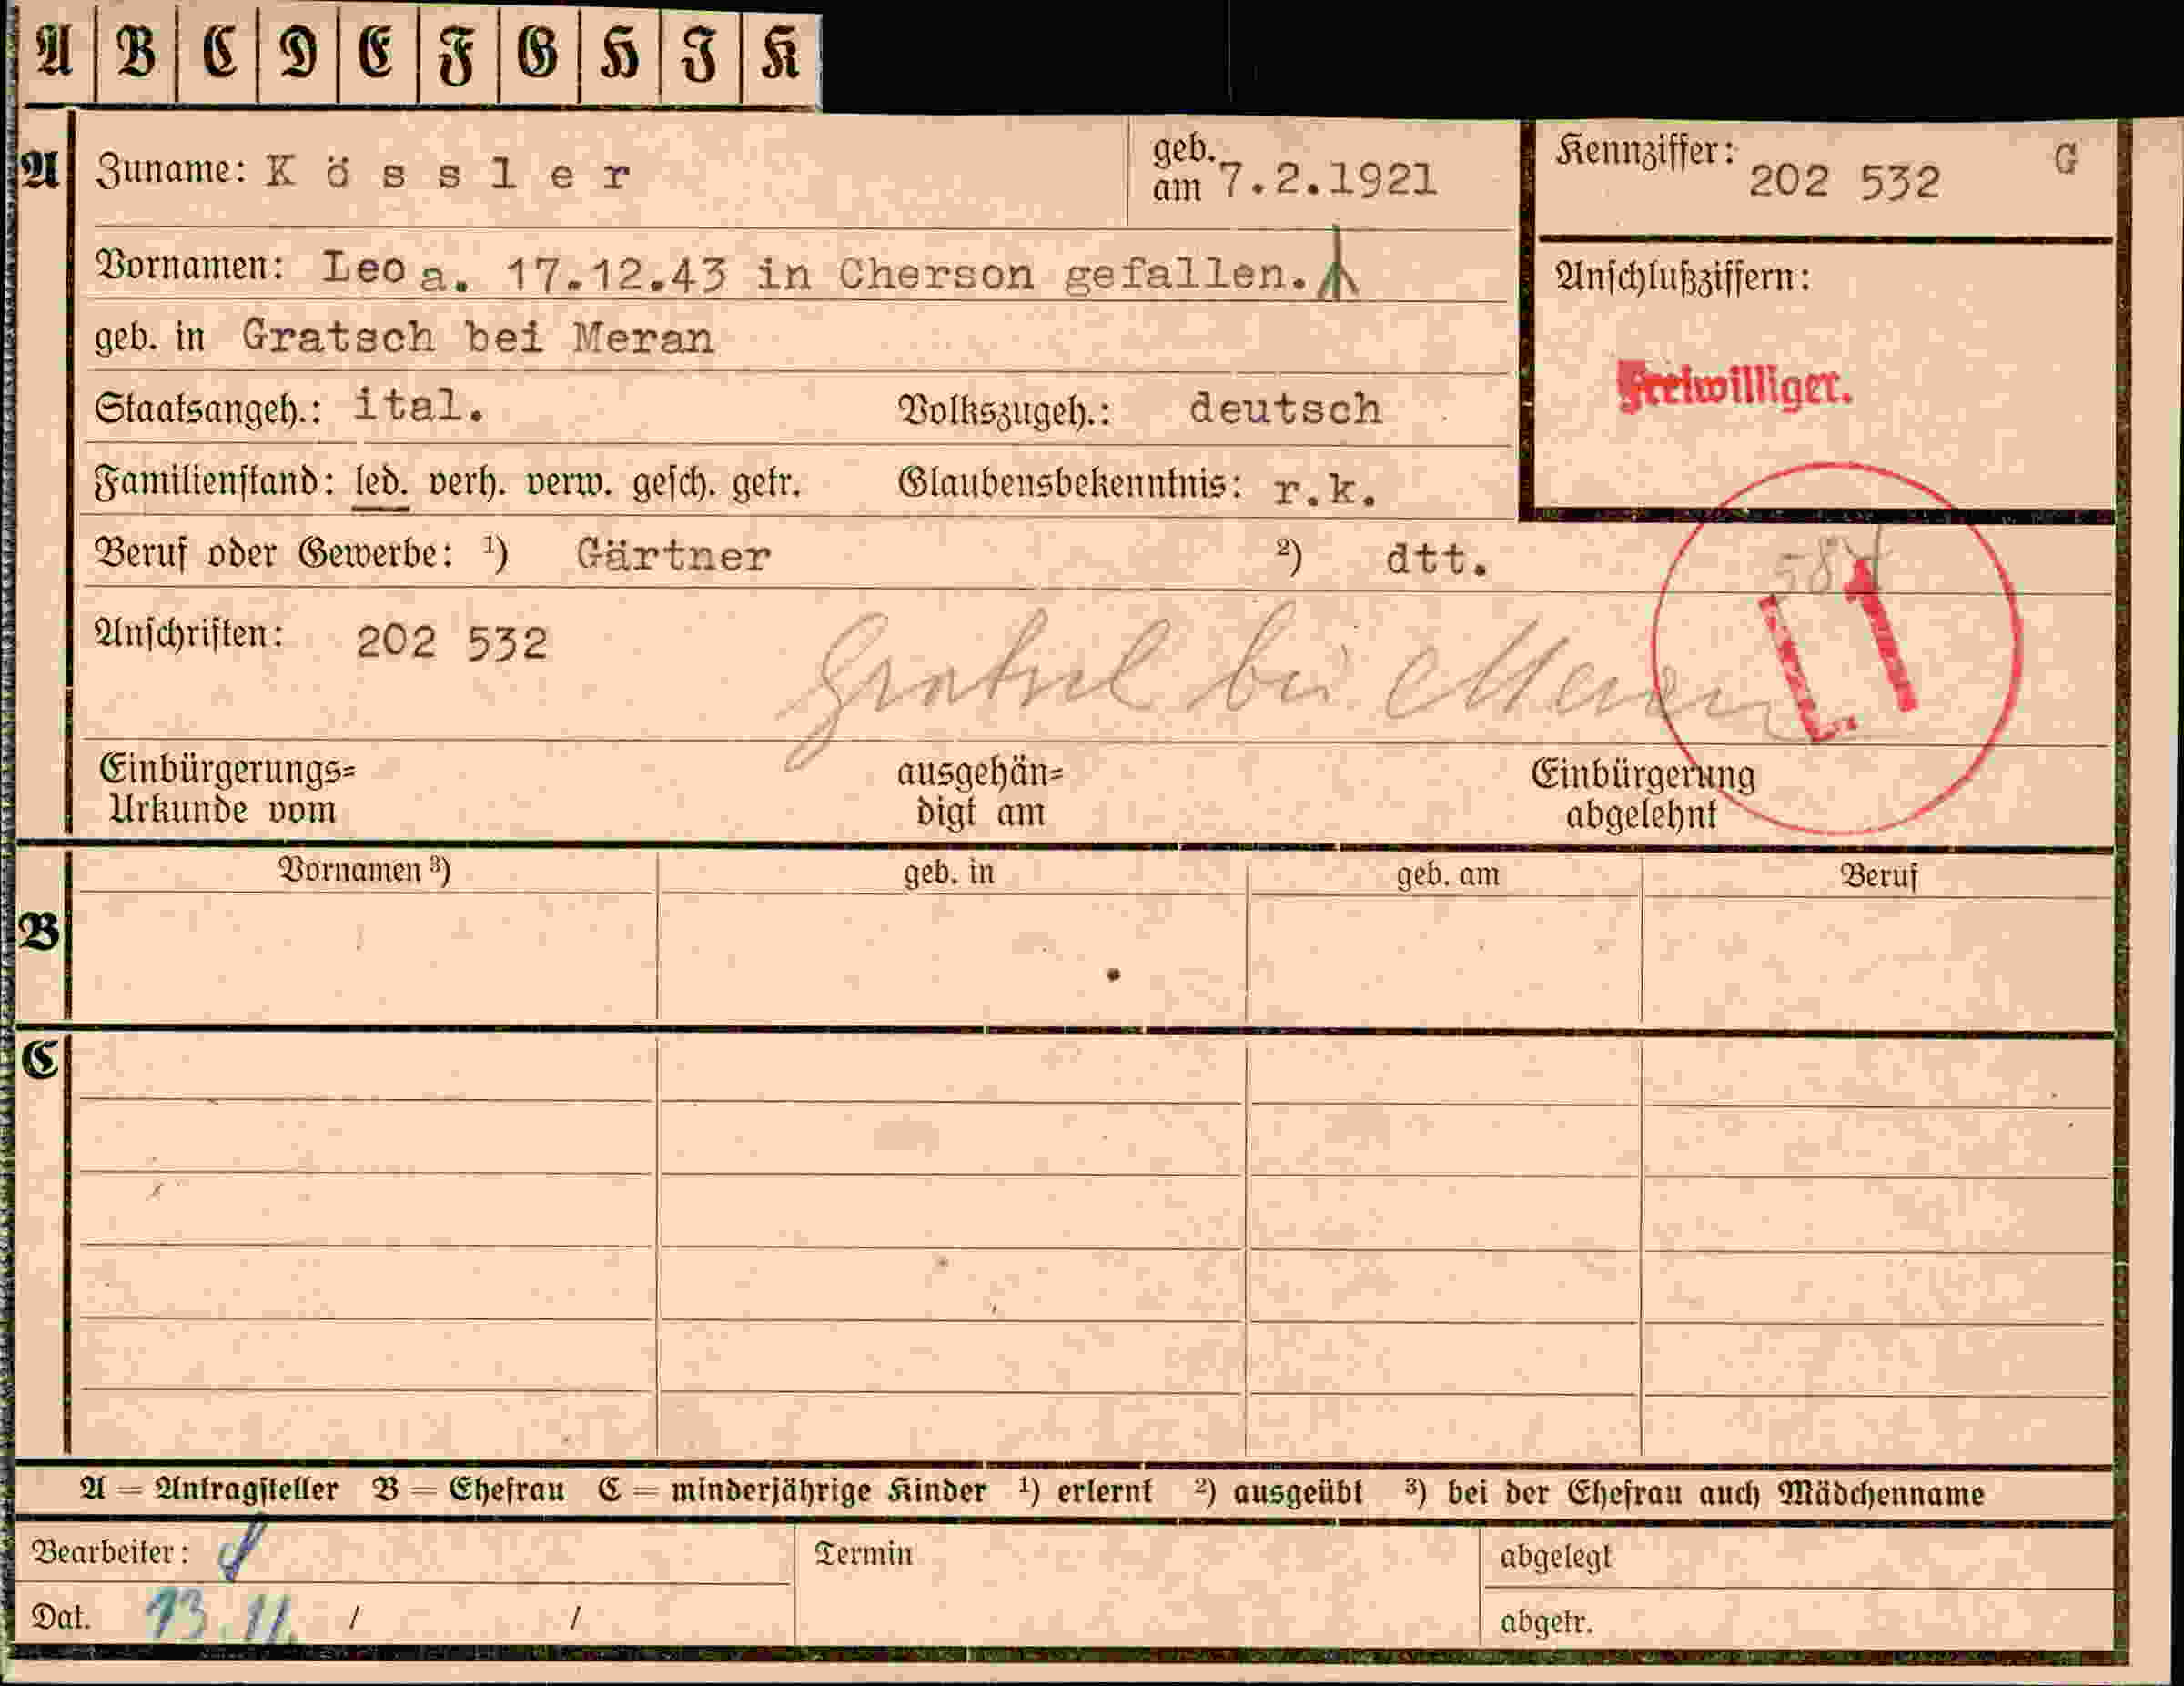 A B C D E F G H I K
A Zuname: Kössler geb. am 7.2.1921 Kennziffer: 202 532 G
Vornamen: Leo a. 17.12.43 in Cherson gefallen. Anschlußziffern:
geb. in Gratsch bei Meran
Freiwilliger.
Staatsangeh.: ital. Volkszugeh.: deutsch
Familienstand: led. verh. verw. gesch. getr. Glaubensbekenntnis: r.k.
Beruf oder Gewerbe: ¹) Gärtner ²) dtt.
Anschriften: 202 532 Gratsch bei Meran
L1
Einbürgerungs= ausgehän= Einbürgerung
Urkunde vom digt am abgelehnt
Vornamen ³) geb. in geb. am Beruf
B
C
A = Antragsteller B = Ehefrau C = minderjährige Kinder ¹) erlernt ²) ausgeübt ³) bei der Ehefrau auch Mädchenname
Bearbeiter: Termin abgelegt
Dat. 13.11. / / abgetr.